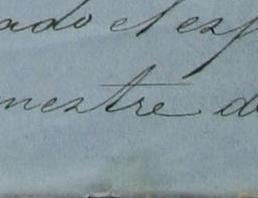 ado el esp
mestre de